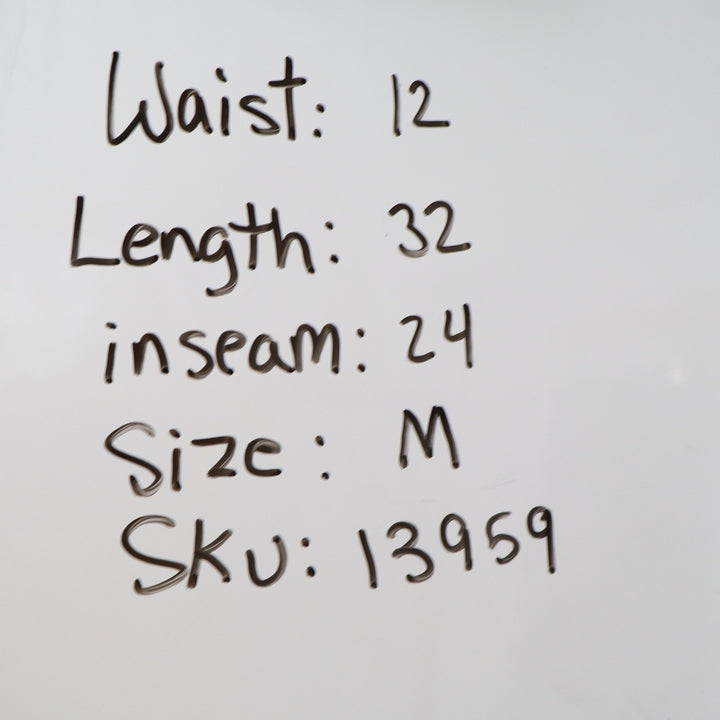 Waist: 12
Length: 32
inseam: 24
Size: M
SKU: 13959